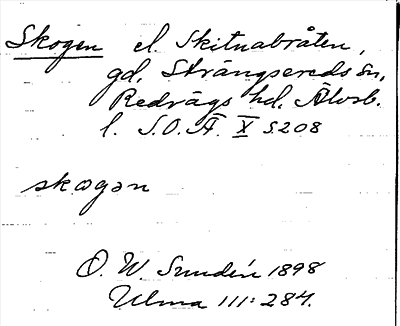 Skogen el. Skitnabråten,
gd. Strängsereds sn,
Redvägs hd. Älvsb.
l. S.O.Ä. X s 208
skogən
O. W. Sundén 1898
Ulma 111:284.